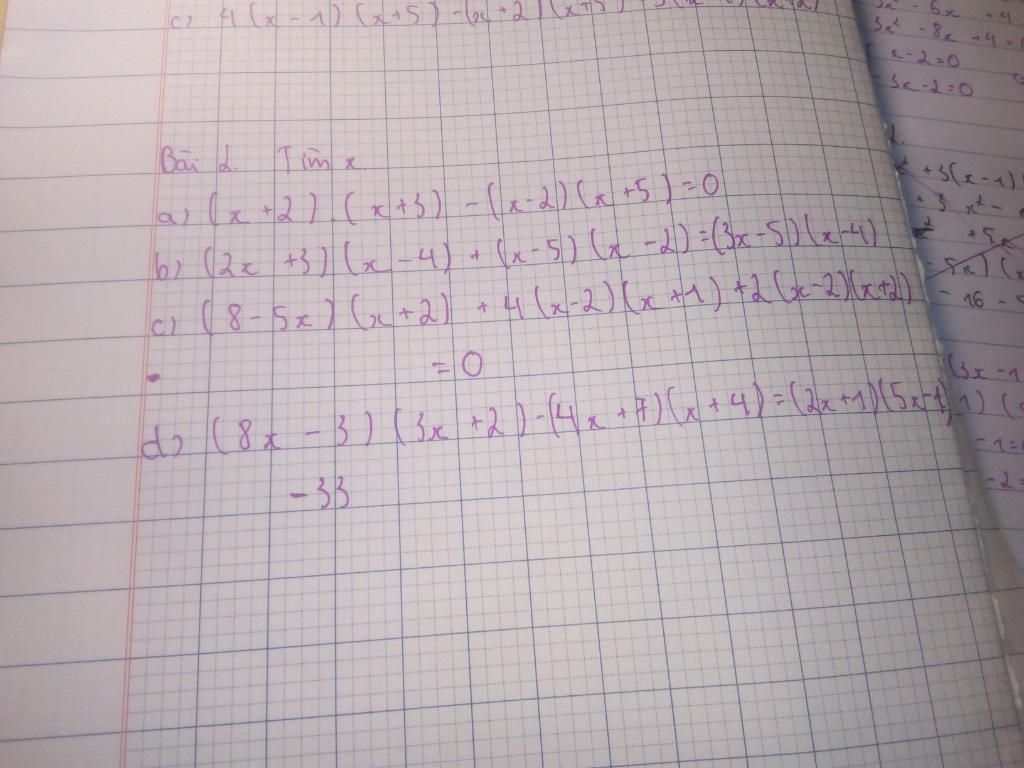 c) 4(x-1)(x+5)
Bài 2. Tìm x
a) (x+2).(x+3) - (x-2)(x+5) = 0
b) (2x+3)(x-4) + (x-5)(x-2) = (3x-5)(x-4)
c) (8-5x)(x+2) + 4(x-2)(x+1) + 2(x-2)(x+2)
= 0
d) (8x-3)(3x+2) - (4x+7)(x+4) = (2x+1)(5x-1)
-33
3x² - 8x + 4 =
x-2=0
3x-2=0
+3(x-1)
- 16 -
(3x-1